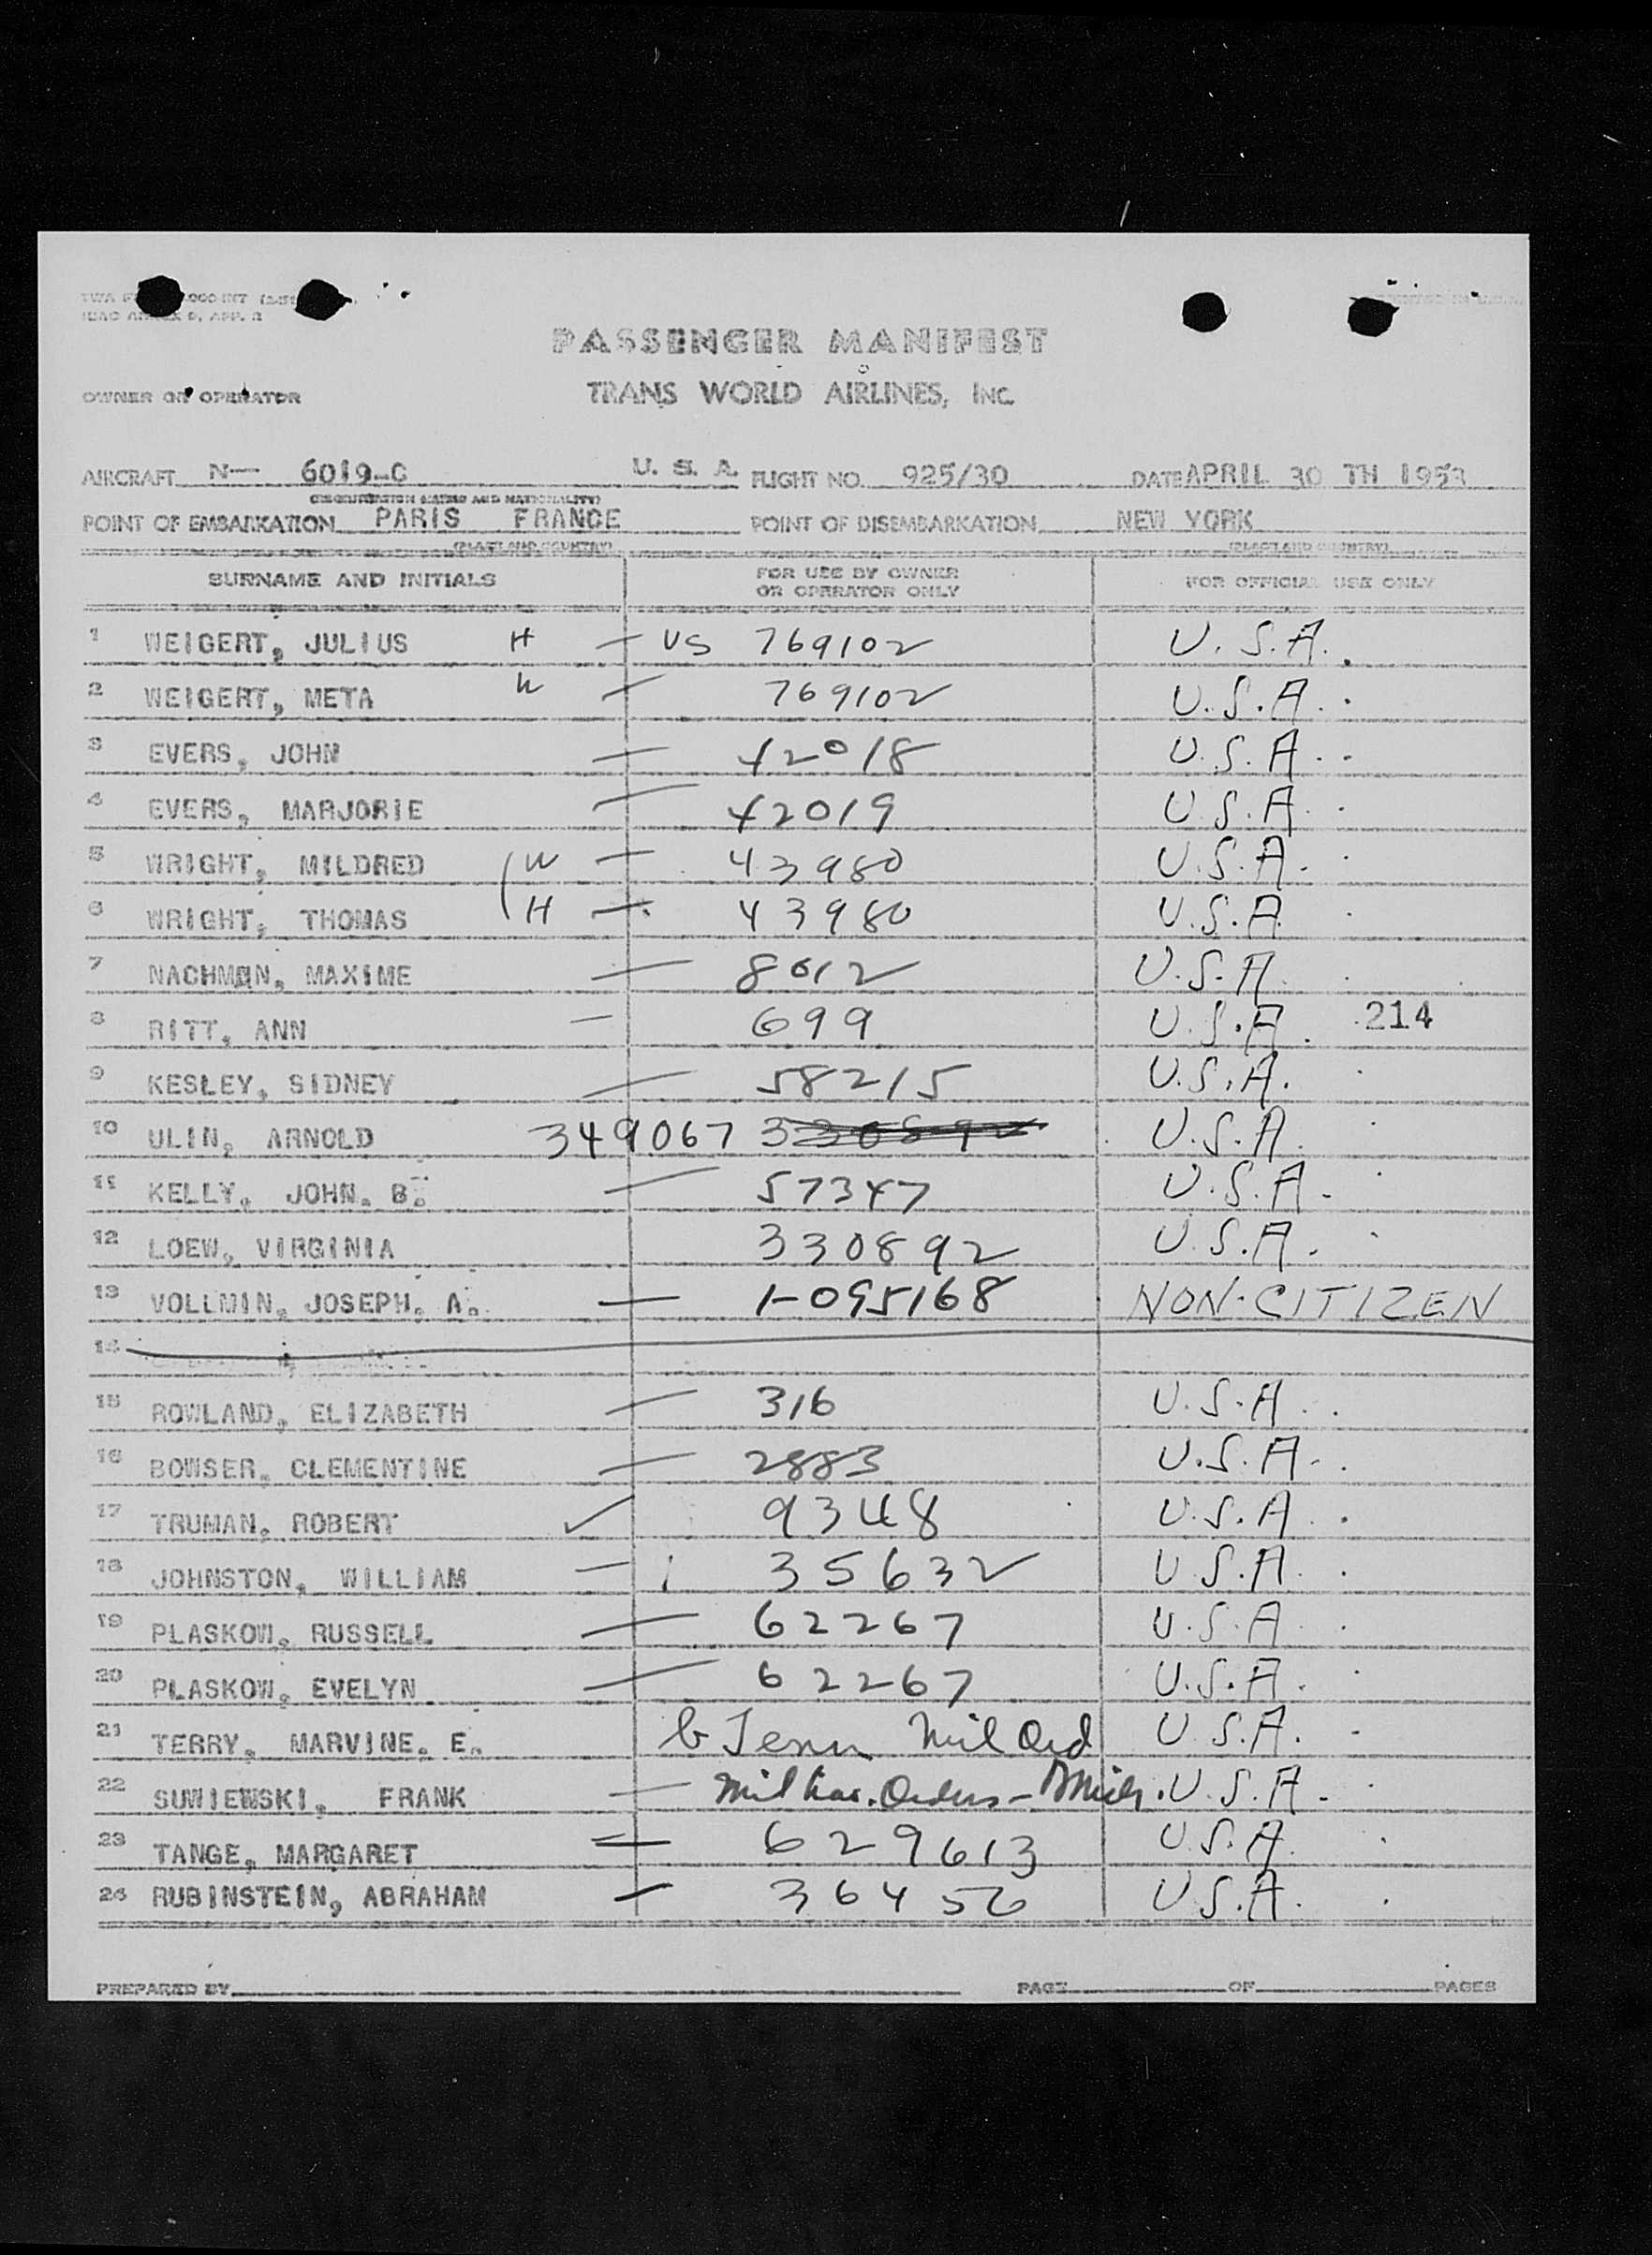 PASSENGER MANIFEST
OWNER OR OPERATOR TRANS WORLD AIRLINES, INC.
AIRCRAFT N— 6019-C U. S. A. FLIGHT NO. 925/30 DATE APRIL 30 TH 1953
(REGISTRATION MARKS AND NATIONALITY)
POINT OF EMBARKATION PARIS FRANCE POINT OF DISEMBARKATION NEW YORK
(PLACE AND COUNTRY) (PLACE AND COUNTRY)
SURNAME AND INITIALS FOR USE BY OWNER OR OPERATOR ONLY FOR OFFICIAL USE ONLY
1 WEIGERT, JULIUS H — US 769102 U.S.A.
2 WEIGERT, META W — 769102 U.S.A.
3 EVERS, JOHN — 42018 U.S.A.
4 EVERS, MARJORIE — 42019 U.S.A.
5 WRIGHT, MILDRED W — 43980 U.S.A.
6 WRIGHT, THOMAS H — 43980 U.S.A.
7 NACHMAN, MAXIME — 8012 U.S.A.
8 RITT, ANN — 699 U.S.A. 214
9 KESLEY, SIDNEY — 58215 U.S.A.
10 ULIN, ARNOLD 349067 330892 U.S.A.
11 KELLY, JOHN. B. — 57347 U.S.A.
12 LOEW, VIRGINIA 330892 U.S.A.
13 VOLLMIN, JOSEPH. A. — 1-095168 NON-CITIZEN
14
15 ROWLAND, ELIZABETH — 316 U.S.A.
16 BOWSER, CLEMENTINE — 2883 U.S.A.
17 TRUMAN, ROBERT ✓ 9348 U.S.A.
18 JOHNSTON, WILLIAM — 35632 U.S.A.
19 PLASKOW, RUSSELL — 62267 U.S.A.
20 PLASKOW, EVELYN — 62267 U.S.A.
21 TERRY, MARVINE. E. b Tenn Mil Ord U.S.A.
22 SUWIEWSKI, FRANK — Orders - U.S.A.
23 TANGE, MARGARET — 629613 U.S.A.
24 RUBINSTEIN, ABRAHAM — 36456 U.S.A.
PREPARED BY PAGE OF PAGES